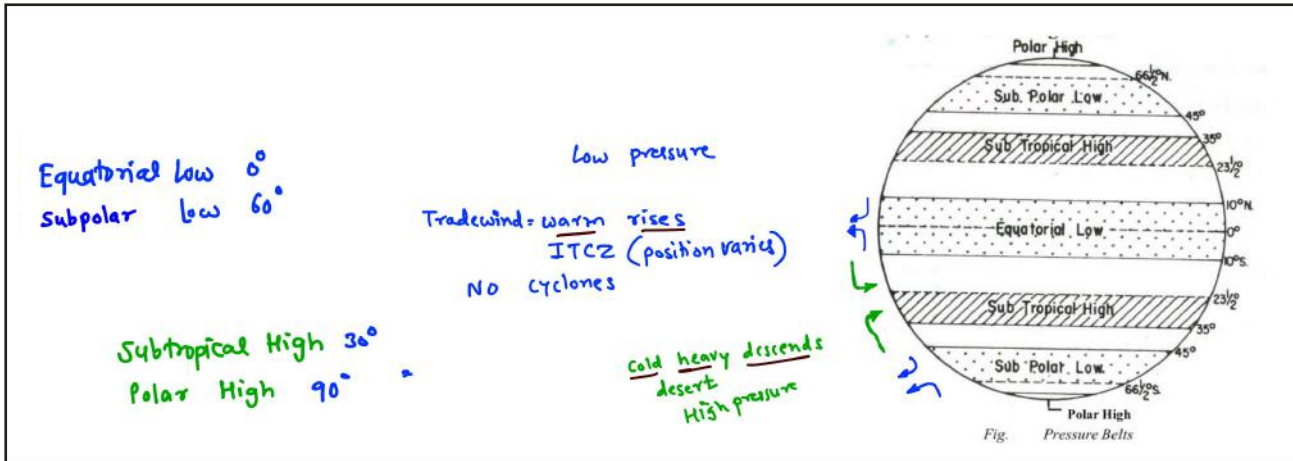 Equatorial Low 0°
Subpolar Low 60°
Subtropical High 30°
Polar High 90°
Low pressure
Tradewind = warm rises
ITCZ (position varies)
NO cyclones
cold heavy descends
desert
High pressure
Polar High
66½°N.
Sub. Polar Low.
45°
35°
Sub Tropical High
23½°
10°N.
Equatorial Low.
0°
10°S.
23½°
Sub Tropical High
35°
45°
Sub Polar Low.
66½°S.
Polar High
Fig. Pressure Belts